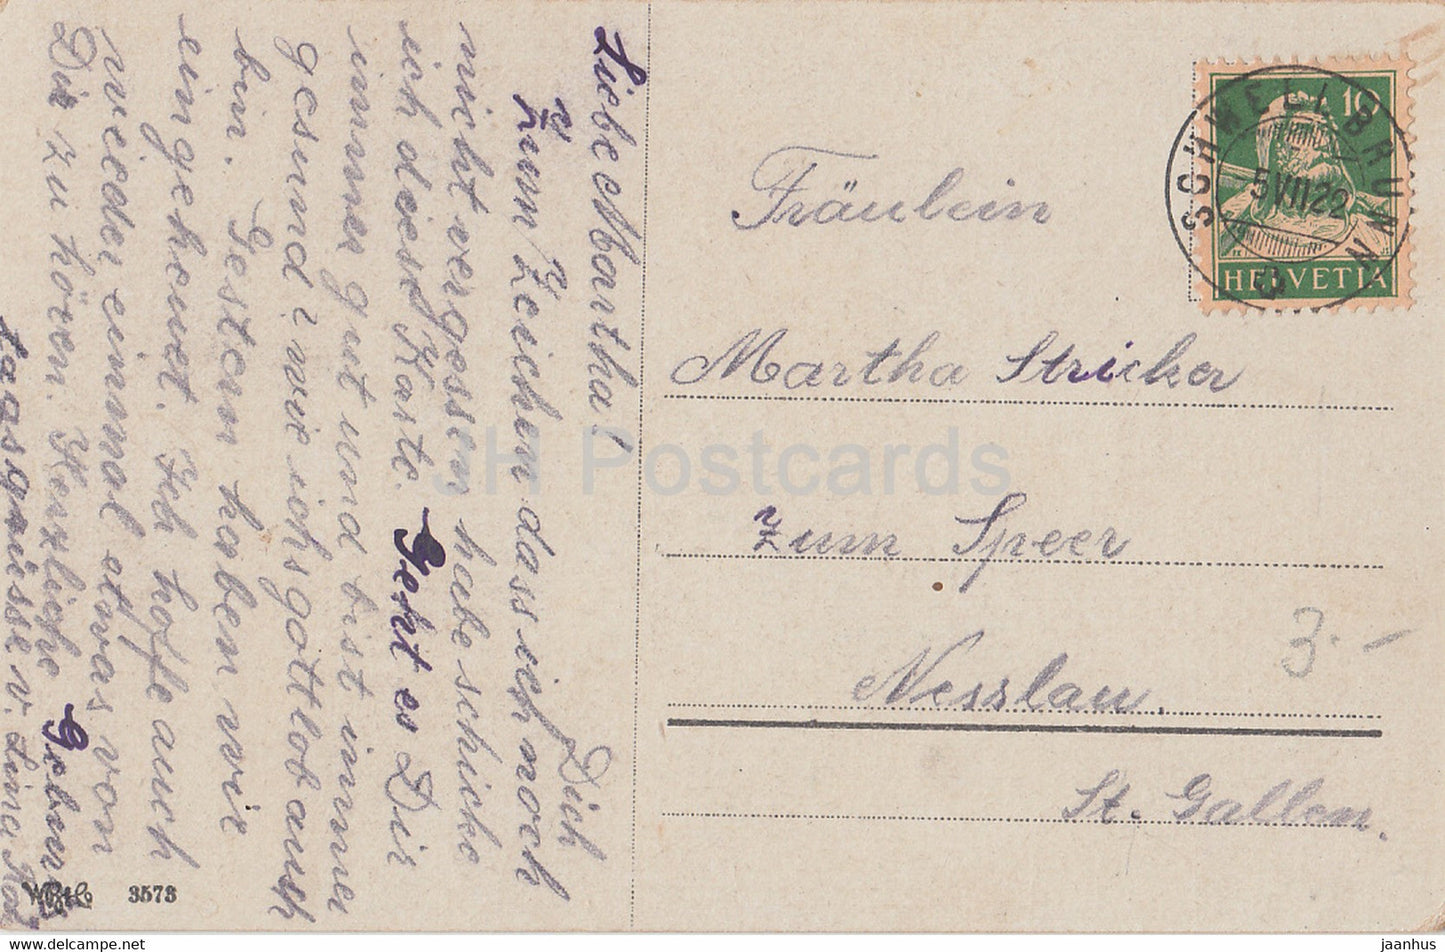 Liebe Martha!
Zum Zeichen dass ich noch
Dich
nicht vergessen habe schicke
ich diese Karte. Geht es Dir
immer gut und bist immer
gesund? wie ich gottlob auch
bin. Gestern haben wir
eingeheuet. Ich hoffe auch
wieder einmal etwas von
Dir zu hören. Herzliche Geburts
tagsgrüsse v. Lina
W.B.&Co 3573
SCHWELLBRUNN
5 VII 22
10
HELVETIA
Fräulein
Martha Stricker
zum Speer
Nesslau.
St. Gallen.
3.-
JH Postcards
jaanhus @ www.delcampe.net